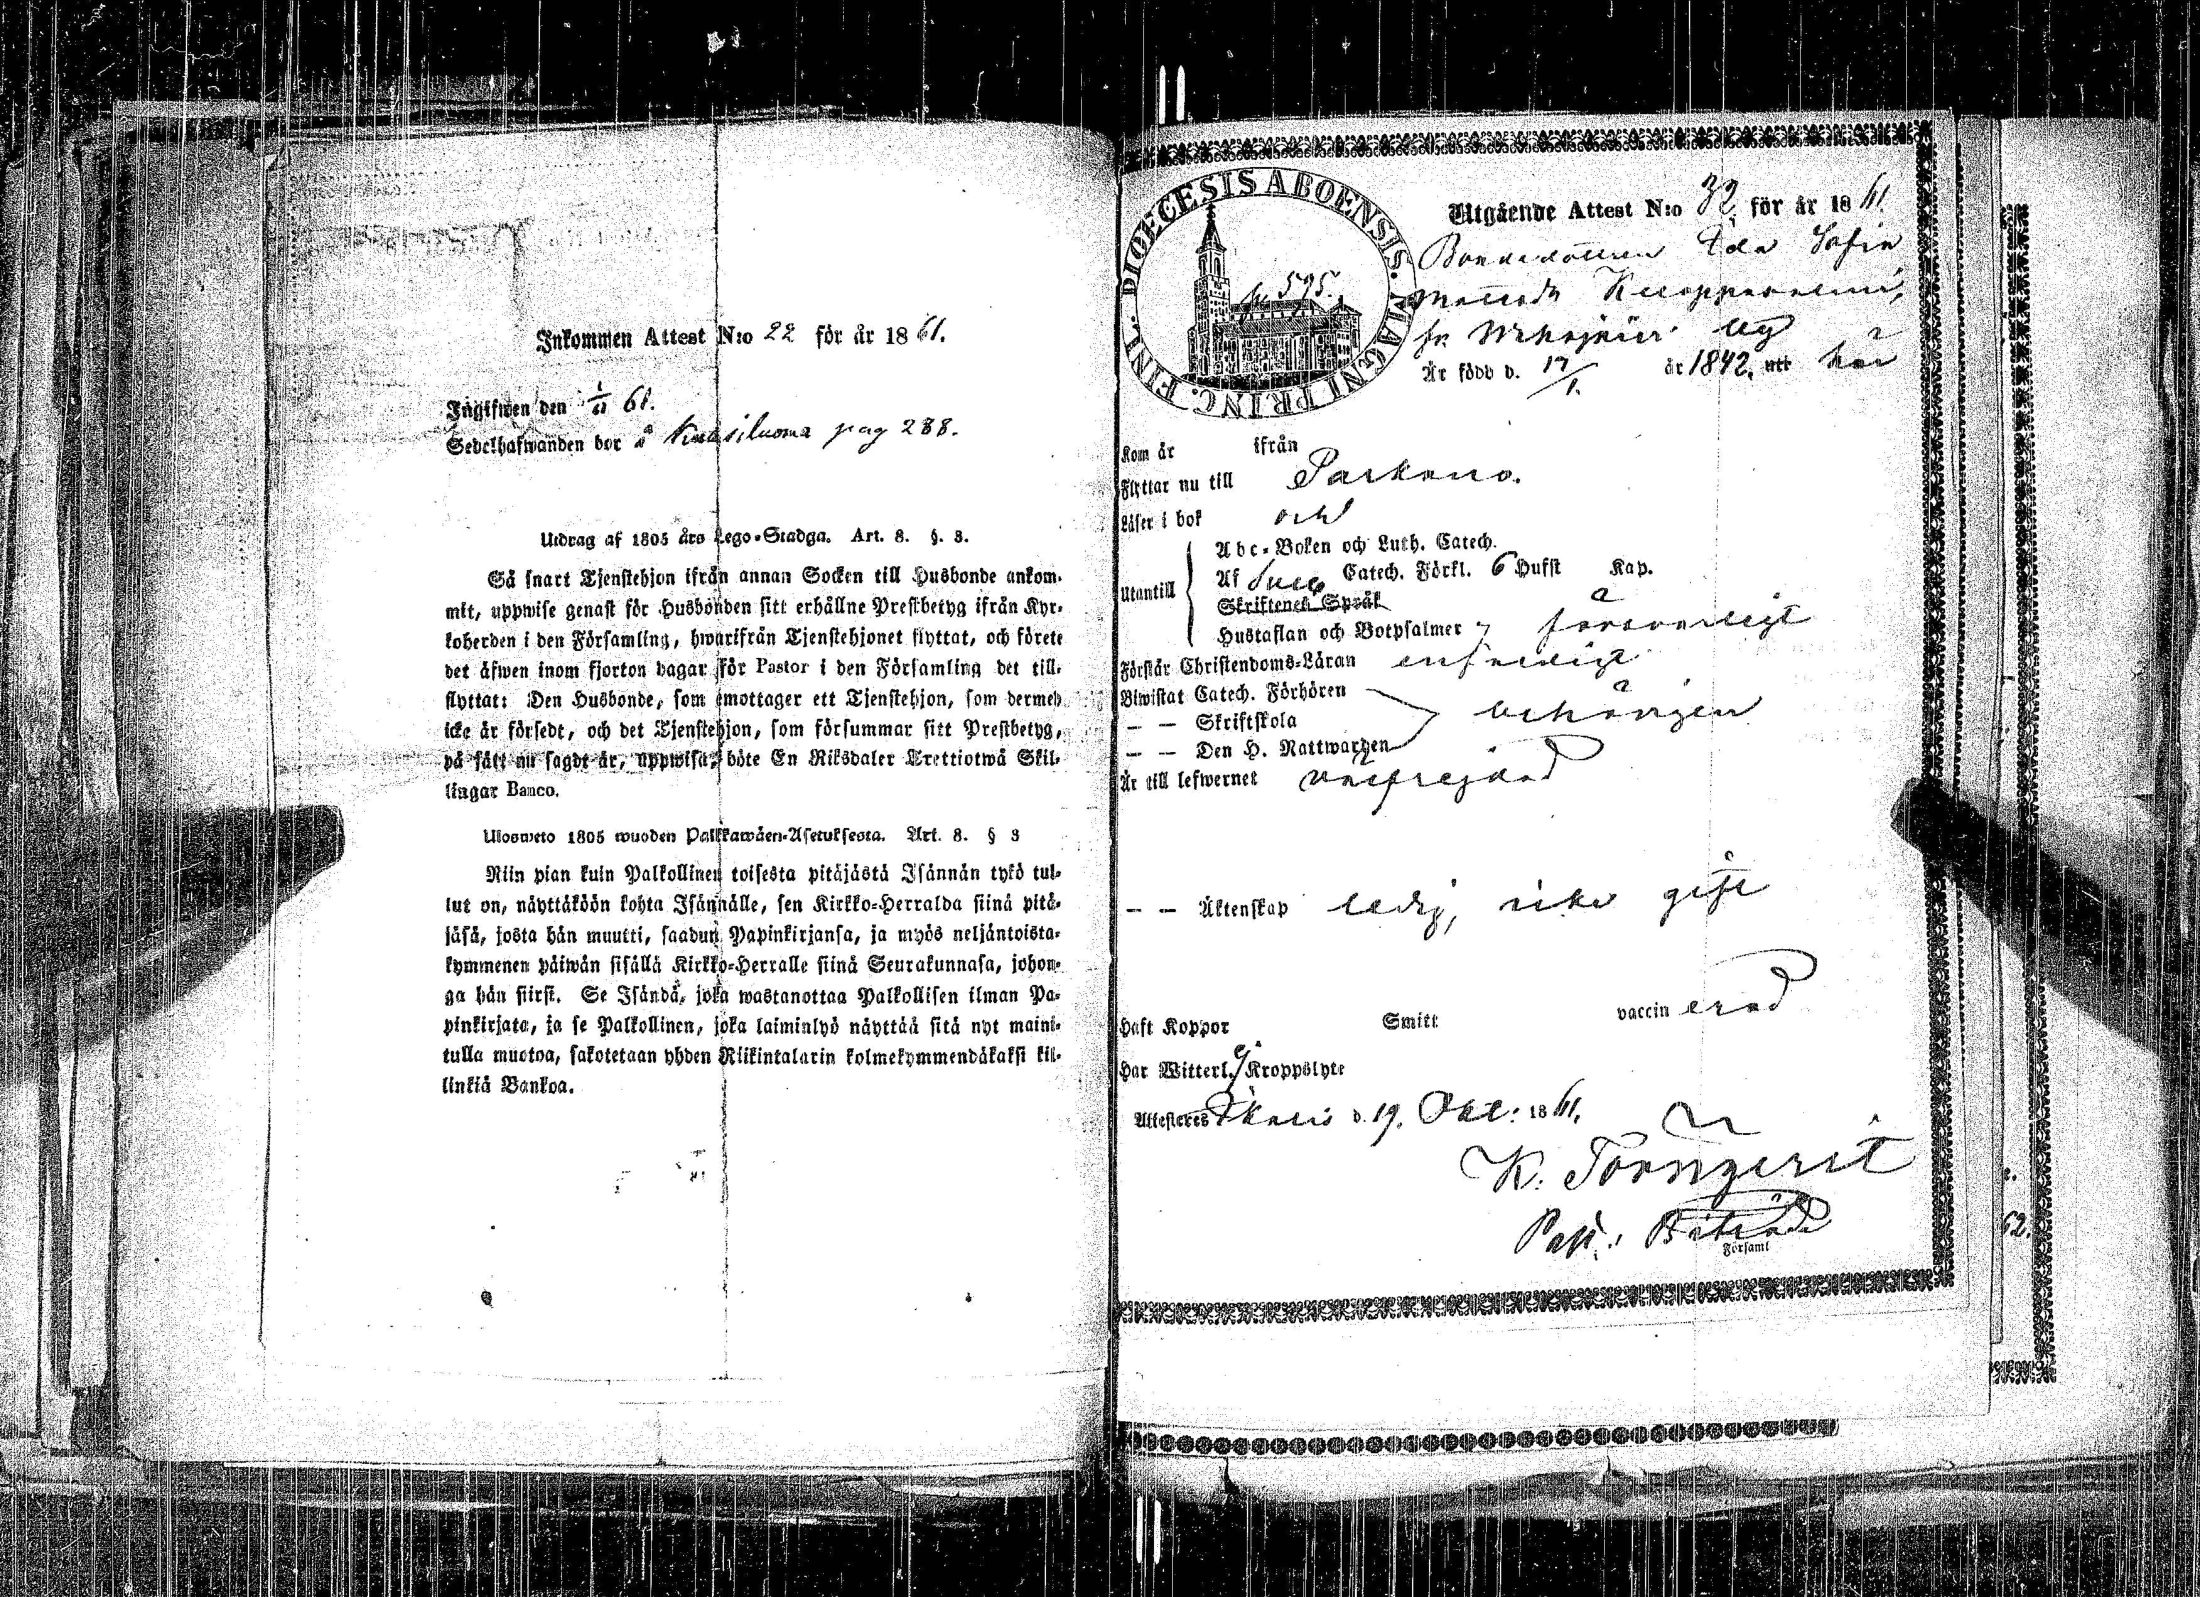 Inkommen Attest N:o 22 för år 1861.
Ingifwen den 1/11 61.
Sedelhafwanden bor å Kuusiluoma pag 288.
Utdrag af 1805 års Lego-Stadga. Art. 8. §. 3.
Så snart Tjenstehjon ifrån annan Socken till Husbonde ankom-
mit, uppwise genast för Husbonden sitt erhållne Prestbetyg ifrån Kyr-
koherden i den Församling, hwarifrån Tjenstehjonet flyttat, och förete
det äfwen inom fjorton dagar för Pastor i den Församling det till-
flyttat: Den Husbonde, som emottager ett Tjenstehjon, som dermed
icke är försedt, och det Tjenstehjon, som försummar sitt Prestbetyg,
på sätt nu sagdt är, uppwisa, böte En Riksdaler Trettiotwå Skil-
lingar Banco.
Ulosweto 1805 wuoden Palkkawäen-Asetuksesta. Art. 8. § 3
Niin pian kuin Palkollinen toisesta pitäjästä Isännän tykö tul-
lut on, näyttäköön kohta Isännälle, sen Kirkko-Herralda siinä pitä-
jäsä, josta hän muutti, saadun Papinkirjansa, ja myös neljäntoista-
kymmenen päiwän sisällä Kirkko-Herralle siinä Seurakunnasa, johon-
ga hän siirsi. Se Isändä, joka wastanottaa Palkollisen ilman Pa-
pinkirjata, ja se Palkollinen, joka laiminlyö näyttää sitä nyt maini-
tulla muotoa, sakotetaan yhden Riikintalarin kolmekymmendäkaksi kil-
linkiä Bankoa.
DIOECESIS ABOENSIS. MAGNI PRINC. FINL.
p. 595.
Utgående Attest N:o 32 för år 1861.
Bondedottren Ida Sofia
Är född d. 17/1. år 1842. här
Kom år ifrån
Flyttar nu till Parkano.
Läser i bok och
Utantill
Abc-Boken och Luth. Catech.
Af Sweb Catech. Förkl. 6 Hufst Kap.
Skriftenes Språk
Hustaflan och Botpsalmer försvarligt
Förstår Christendoms-Läran enfaldigt
Biwistat Catech. Förhören
— — Skriftskola behörigen
— — Den H. Nattwarden
Är till lefwernet oansfrejdad
— — Äktenskap ledig, icke gift
Haft Koppor Smitt vaccinerad
Har Witterl. ej Kroppslyte
Attesteres Ikalis d. 19. Okt: 1861.
K. Törnqvist
Past: Biträde
Församl
62.